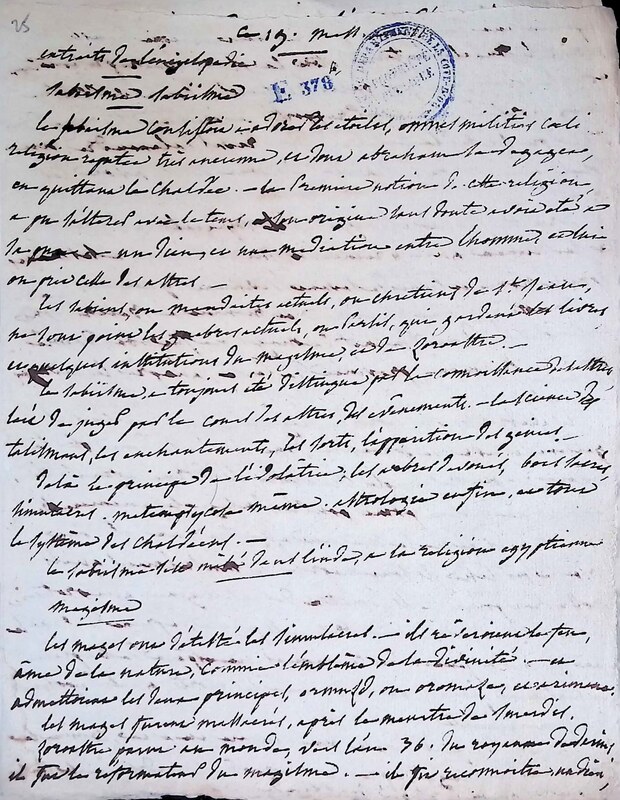 25
ce 19. mess.
E 378
extraits de l'encyclopédie
sabiisme sabiisme
le sabiisme consistoit a adorer les etoiles, omnes militias coeli
religion reputée très ancienne, et dont abraham se degagea,
en quittant la chaldée. — la premiere notion de cette religion,
a pu s'alterer avec le tems, a son origine sans doute avoir été a
un dieu, et une mediation entre l'homme et lui
on prie celle des astres —
les sabiens, ou mendaïtes actuels, ou chretiens de St. Jean,
ne sont point les guebres actuels, ou Parsis, qui gardent les livres
et quelques institutions du magisme, et de zoroastre. —
le sabiisme, a toujours été distingué par la connoissance des astres
l'art de juger par le cours des astres, des evênements. — la science des
talismans, les enchantements, les sorts, l'apparition des genies. —
de là le principe de l'idolatrie, les arbres devoués, bois sacrés,
simulacres metempsycose même. astrologie enfin, et tout
le système des chaldéens. —
le sabiisme s'est mêlé dans l'inde, a la religion egyptienne
magisme
les mages ont détesté les simulacres. — ils réveroient le feu,
âme de la nature, comme l'emblème de la divinité. — et
admettoient les deux principes, ormuzd, ou oromaze, et arimane.
les mages furent massacrés, après le meurtre de smerdis.
zoroastre parut au monde, vers l'an 36. du royaume de darius,
il fut le réformateur du magisme. — il fit reconnoitre un dieu,